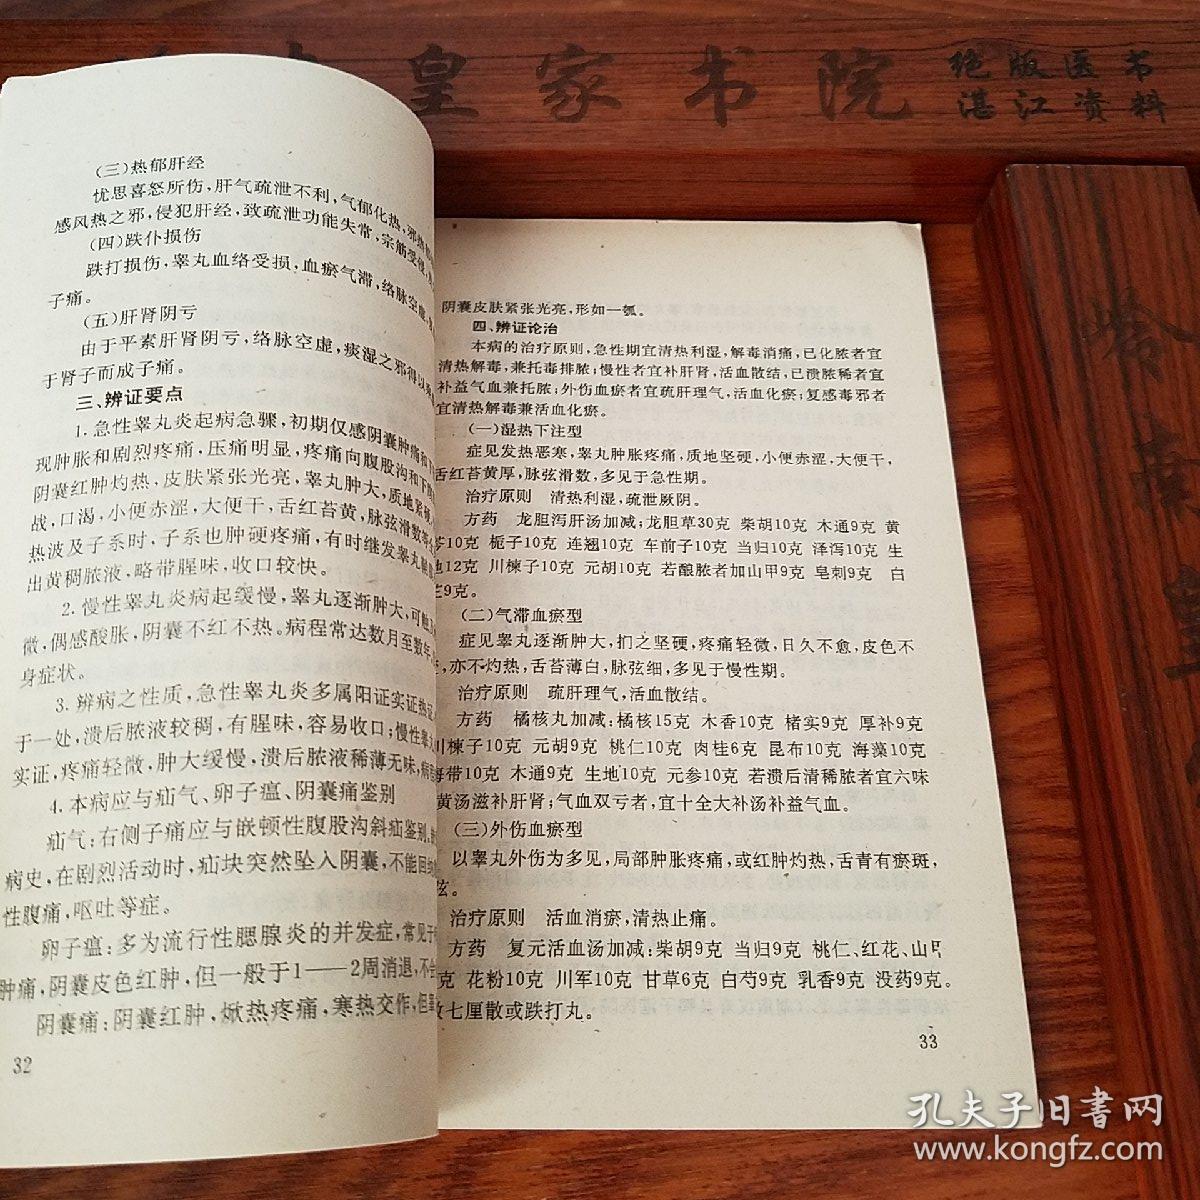 皇家书院
绝版医书
湛江资料
(三)热郁肝经
忧思喜怒所伤,肝气疏泄不利,气郁化热,邪热
感风热之邪,侵犯肝经,致疏泄功能失常,宗筋受侵,
(四)跌仆损伤
跌打损伤,睾丸血络受损,血瘀气滞,络脉空虚,
子痛。
(五)肝肾阴亏
由于平素肝肾阴亏,络脉空虚,痰湿之邪得以
于肾子而成子痛。
三、辨证要点
1.急性睾丸炎起病急骤,初期仅感阴囊肿痛和下
现肿胀和剧烈疼痛,压痛明显,疼痛向腹股沟和下
阴囊红肿灼热,皮肤紧张光亮,睾丸肿大,质地紧硬,
战,口渴,小便赤涩,大便干,舌红苔黄,脉弦滑数
热波及子系时,子系也肿硬疼痛,有时继发睾丸
出黄稠脓液,略带腥味,收口较快。
2.慢性睾丸炎病起缓慢,睾丸逐渐肿大,可触
微,偶感酸胀,阴囊不红不热。病程常达数月至数年,
身症状。
3.辨病之性质,急性睾丸炎多属阳证实证热证,
于一处,溃后脓液较稠,有腥味,容易收口;慢性睾丸
实证,疼痛轻微,肿大缓慢,溃后脓液稀薄无味,病
4.本病应与疝气、卵子瘟、阴囊痛鉴别
疝气:右侧子痛应与嵌顿性腹股沟斜疝鉴别,
病史,在剧烈活动时,疝块突然坠入阴囊,不能回纳
性腹痛,呕吐等症。
卵子瘟:多为流行性腮腺炎的并发症,常见于
肿痛,阴囊皮色红肿,但一般于1——2周消退,不
阴囊痛:阴囊红肿,焮热疼痛,寒热交作,但睾
32
阴囊皮肤紧张光亮,形如一瓠。
四、辨证论治
本病的治疗原则,急性期宜清热利湿,解毒消痛,已化脓者宜
清热解毒,兼托毒排脓;慢性者宜补肝肾,活血散结,已溃脓稀者宜
补益气血兼托脓;外伤血瘀者宜疏肝理气,活血化瘀;复感毒邪者
宜清热解毒兼活血化瘀。
(一)湿热下注型
症见发热恶寒,睾丸肿胀疼痛,质地坚硬,小便赤涩,大便干,
舌红苔黄厚,脉弦滑数,多见于急性期。
治疗原则 清热利湿,疏泄厥阴。
方药 龙胆泻肝汤加减;龙胆草30克 柴胡10克 木通9克 黄
芩10克 栀子10克 连翘10克 车前子10克 当归10克 泽泻10克 生
地12克 川楝子10克 元胡10克 若酿脓者加山甲9克 皂刺9克 白
芷9克。
(二)气滞血瘀型
症见睾丸逐渐肿大,扪之坚硬,疼痛轻微,日久不愈,皮色不
,亦不灼热,舌苔薄白,脉弦细,多见于慢性期。
治疗原则 疏肝理气,活血散结。
方药 橘核丸加减:橘核15克 木香10克 楮实9克 厚补9克
川楝子10克 元胡9克 桃仁10克 肉桂6克 昆布10克 海藻10克
海带10克 木通9克 生地10克 元参10克 若溃后清稀脓者宜六味
黄汤滋补肝肾;气血双亏者,宜十全大补汤补益气血。
(三)外伤血瘀型
以睾丸外伤为多见,局部肿胀疼痛,或红肿灼热,舌青有瘀斑,
弦。
治疗原则 活血消瘀,清热止痛。
方药 复元活血汤加减:柴胡9克 当归9克 桃仁、红花、山甲
克 花粉10克 川军10克 甘草6克 白芍9克 乳香9克 没药9克。
七厘散或跌打丸。
33
孔夫子旧书网
www.kongfz.com